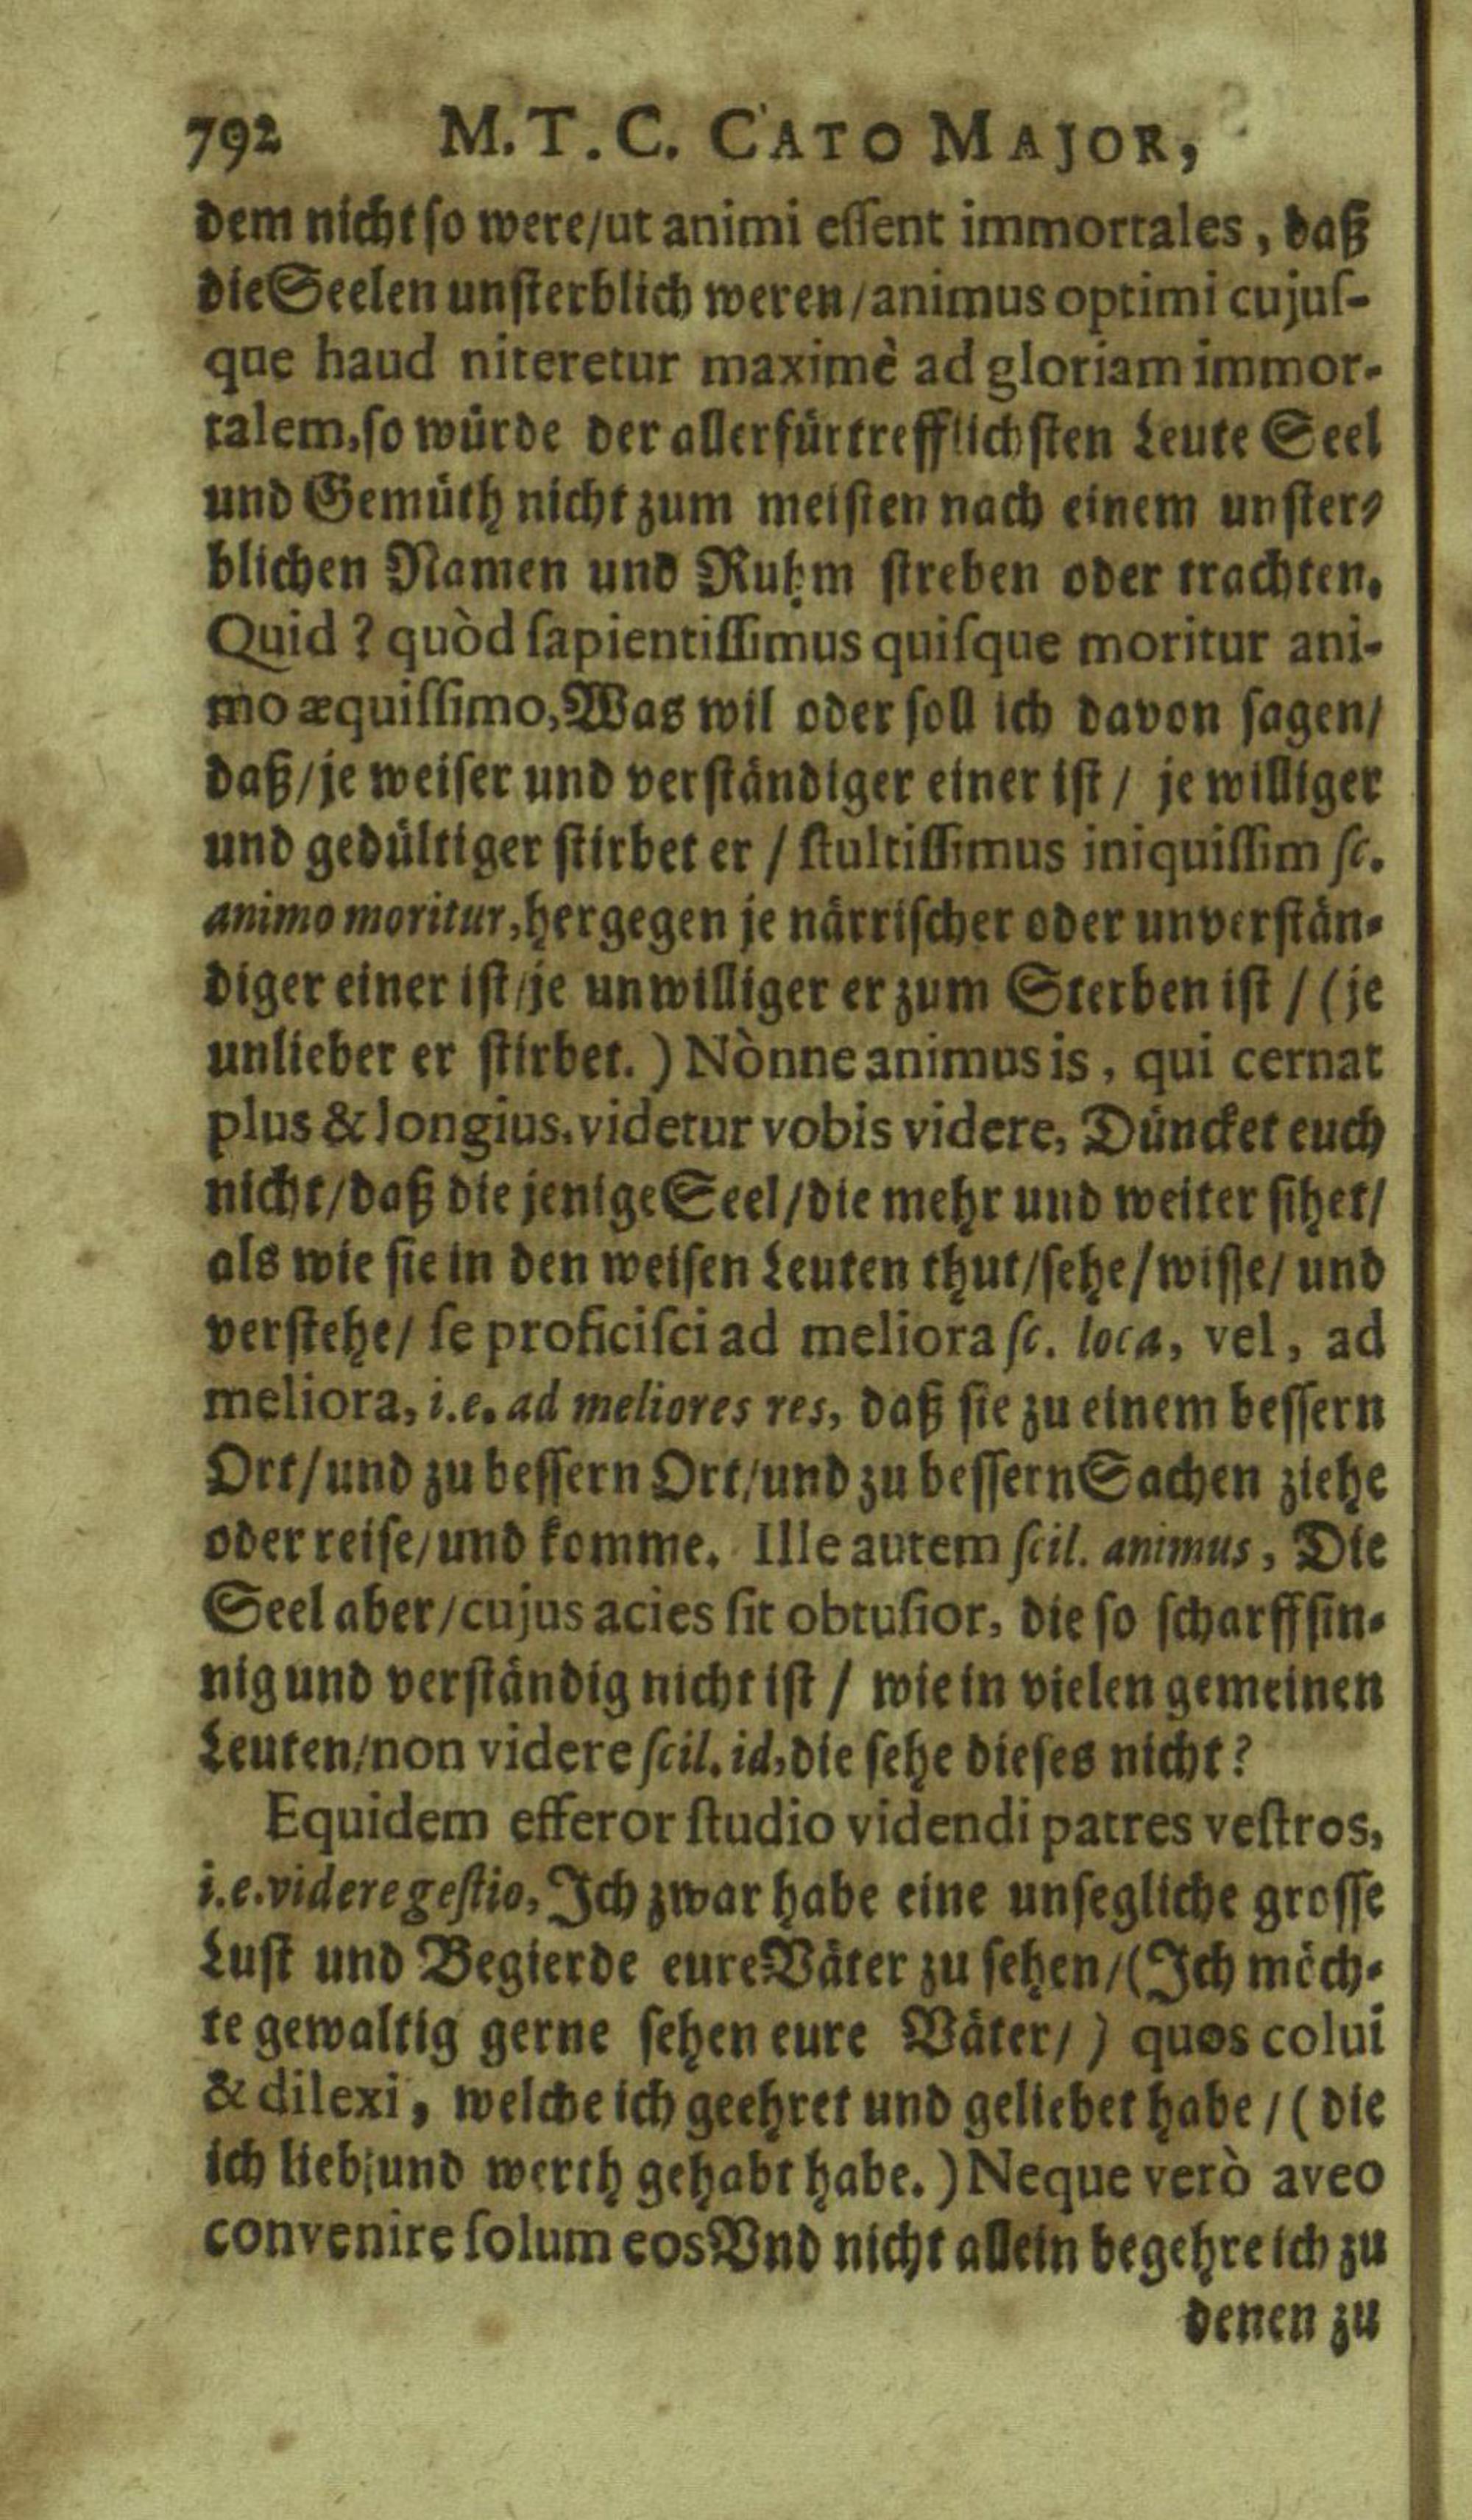 792 M. T. C. CATO MAJOR,
dem nicht so were/ut animi eſſent immortales, daß
die Seelen unsterblich weren/animus optimi cujuſ-
que haud niteretur maximè ad gloriam immor-
talem, so würde der allerfürtrefflichsten Leute Seel
und Gemüth nicht zum meisten nach einem unster-
blichen Namen und Ruhm streben oder trachten.
Quid? quòd ſapientiſſimus quiſque moritur ani-
mo æquiſſimo, Was wil oder soll ich davon sagen/
daß/je weiser und verständiger einer ist/ je williger
und gedültiger stirbet er / ſtultiſſimus iniquiſſim ſc.
animo moritur, hergegen je närrischer oder unverstän-
diger einer ist/je unwilliger er zum Sterben ist / (je
unlieber er stirbet.) Nònne animus is, qui cernat
plus & longius. videtur vobis videre, Düncket euch
nicht/daß die jenige Seel/die mehr und weiter sihet/
als wie sie in den weisen Leuten thut/sehe/wisse/ und
verstehe/ ſe proficiſci ad meliora ſc. loca, vel, ad
meliora, i.e. ad meliores res, daß sie zu einem bessern
Ort/und zu bessern Ort/und zu bessern Sachen ziehe
oder reise/und komme. Ille autem ſcil. animus, Die
Seel aber/cujus acies ſit obtuſior, die so scharffsin-
nig und verständig nicht ist / wie in vielen gemeinen
Leuten/non videre ſcil. id, die sehe dieses nicht?
Equidem efferor ſtudio videndi patres veſtros,
i.e. videre geſtio, Ich zwar habe eine unsegliche grosse
Lust und Begierde eure Väter zu sehen/(Ich möch-
te gewaltig gerne sehen eure Väter/) quos colui
& dilexi, welche ich geehret und geliebet habe / (die
ich lieb/und werth gehabt habe.) Neque verò aveo
convenire ſolum eos Vnd nicht allein begehre ich zu
denen zu